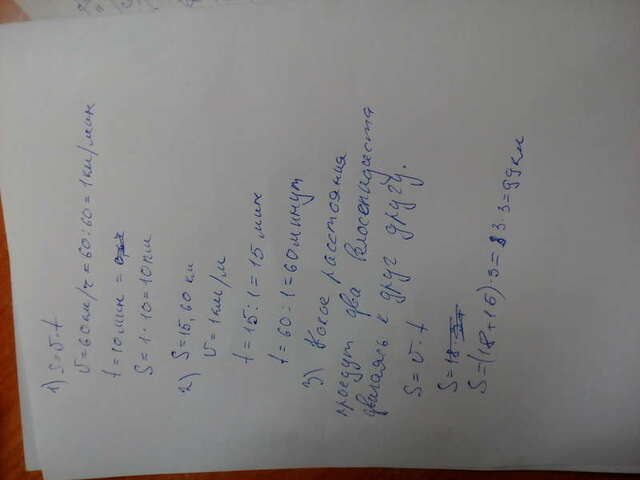 1) S=v·t
v=60км/ч=60:60=1км/мин
t=10мин=
S=1·10=10км
2) S=15,60 км
v=1км/м
t=15:1=15 мин
t=60:1=60минут
3) Какое расстояния
проедут два велосепидиста
двигаясь к друг другу.
S=v·t
S=18
S=(18+15)·3=33·3=99км